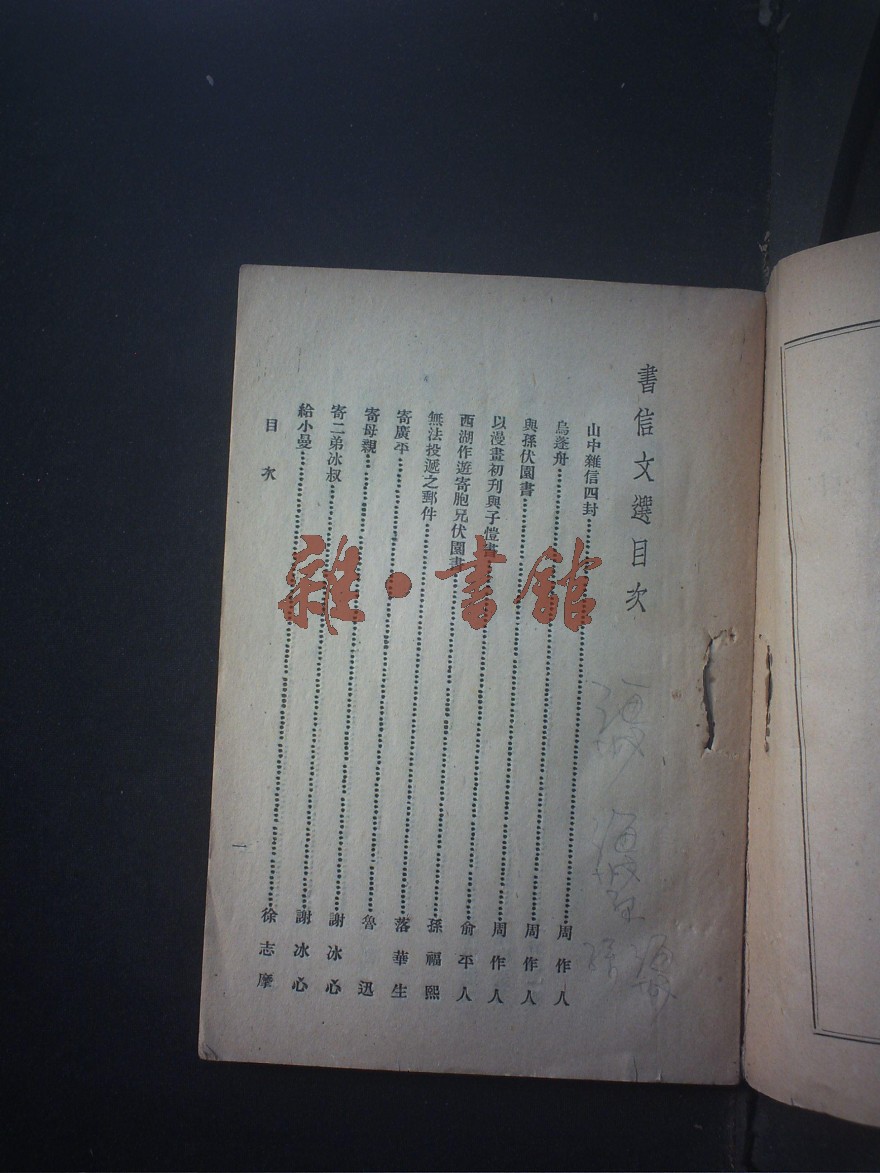 書信文選目次
山中雜信四封⋯⋯周作人
烏蓬舟⋯⋯周作人
與孫伏園書⋯⋯周作人
以漫畫初刊與子愷書⋯⋯俞平人
西湖作遊寄胞兄伏園書⋯⋯孫福熙
無法投遞之郵件⋯⋯落華生
寄廣平⋯⋯魯迅
寄母親⋯⋯謝冰心
寄二弟冰叔⋯⋯謝冰心
給小曼⋯⋯徐志摩
目次
一
雜·書館